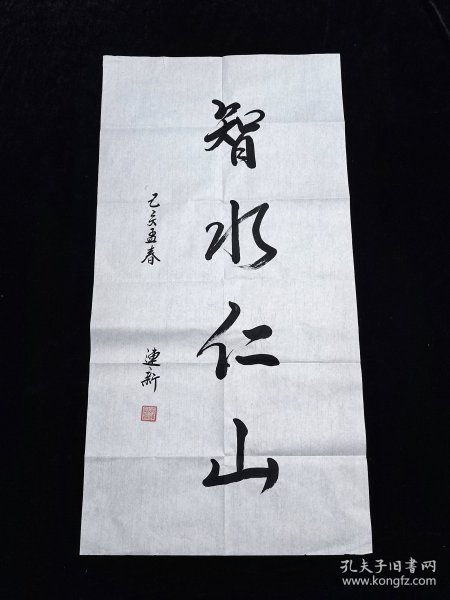 智水仁山
己亥孟春
連新
孔夫子旧书网
www.kongfz.com